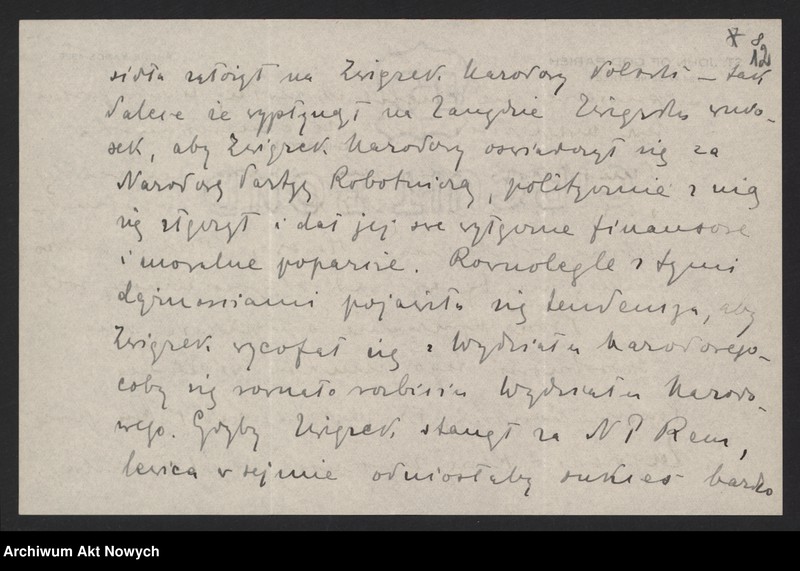 8
12
sidła założył na Związek Narodowy Polski – tak
dalece że wypłynął na Zarządzie Związku wnio-
sek, aby Związek Narodowy oswiadczył się za
Narodową Partyą Robotniczą, politycznie z nią
się złączył i dał jej swe wyłączne finansowe
i moralne poparcie. Rownolegle z tymi
dążnosciami pojawiła się tendencya, aby
Związek wycofał się z Wydziału Narodowego,
coby się rownało rozbiciu Wydziału Narodo-
wego. Gdyby Związek stanął za N P Rem,
lewica w sejmie odniosłaby sukces bardzo
Archiwum Akt Nowych